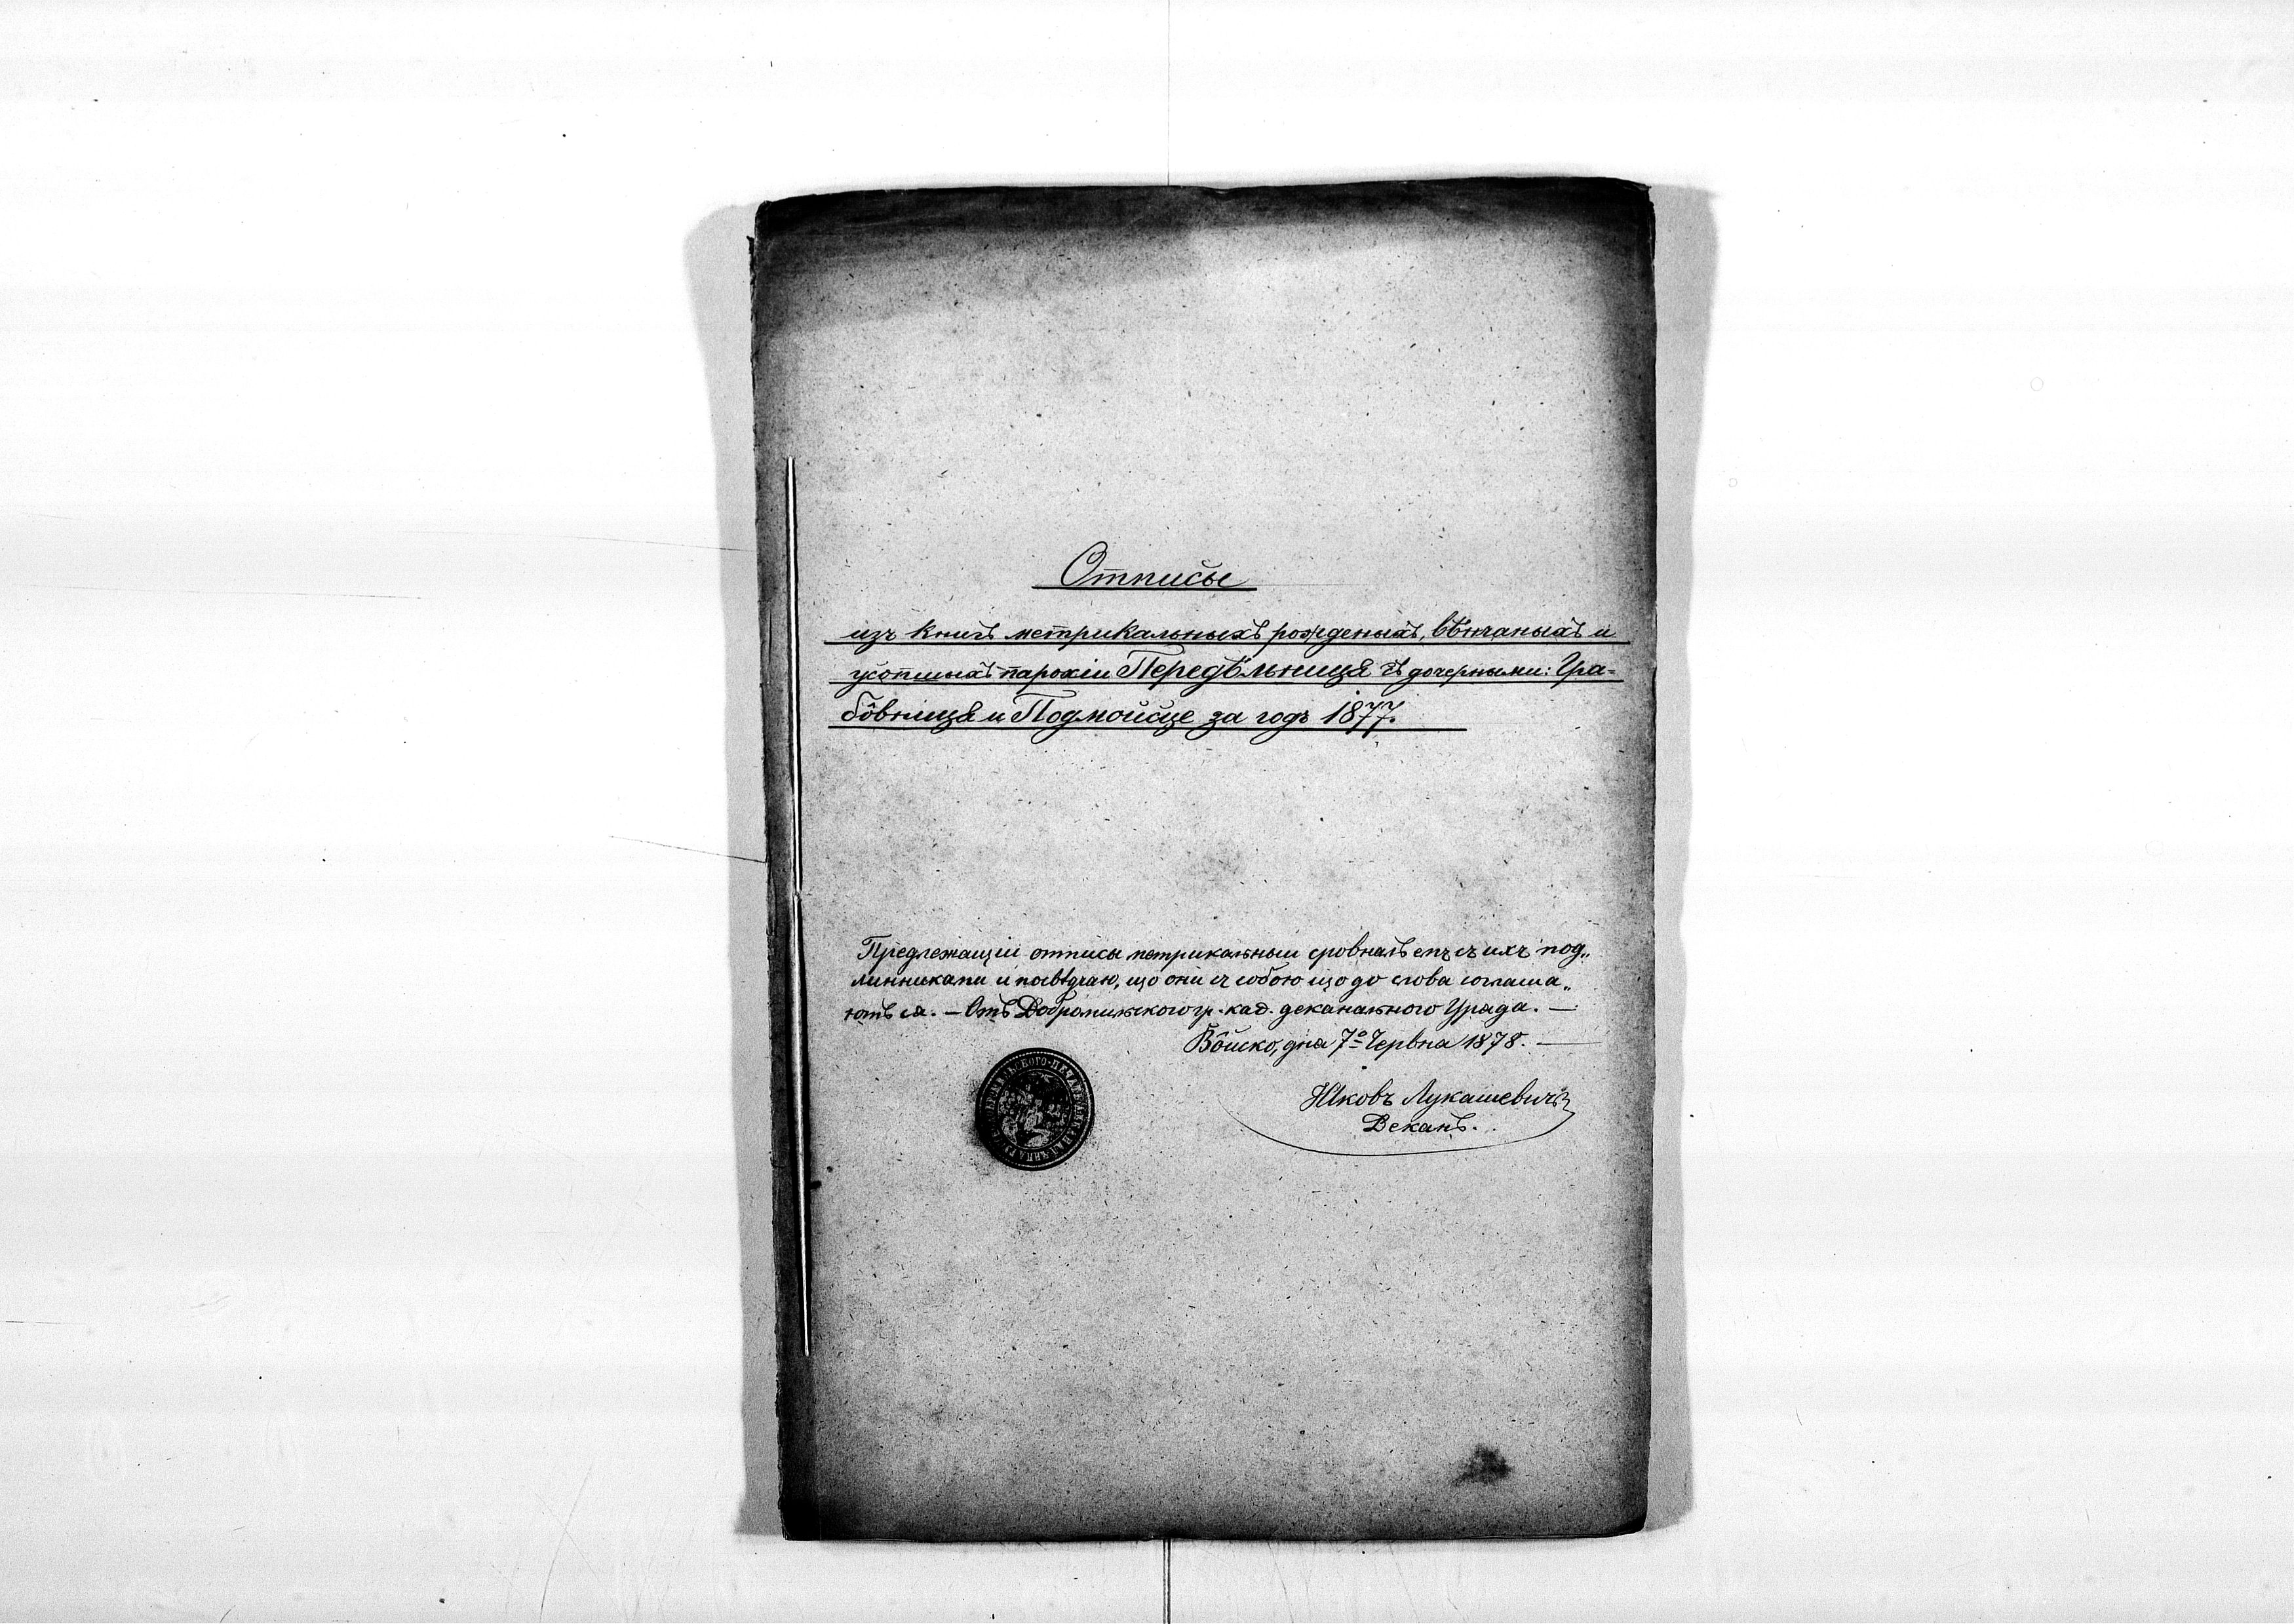 Отписы
изъ книгъ метрикальныхъ рожденыхъ, вѣнчаныхъ и
усопшыхъ парохіи Передѣльница съ дочерными: Гра-
бôвница и Подмойсце за годъ 1877.
Предлежащіи отписы метрикальныи сровналъ емъ съ ихъ под„
линниками и посвѣдчаю, що они съ собою що до слова соглаша„
ютъ ся. — Отъ Добромильского гр. кат. деканального Уряда. —
Вôйско, дня 7º Червня 1878. —
Яковъ Лукашевичъ
Деканъ.